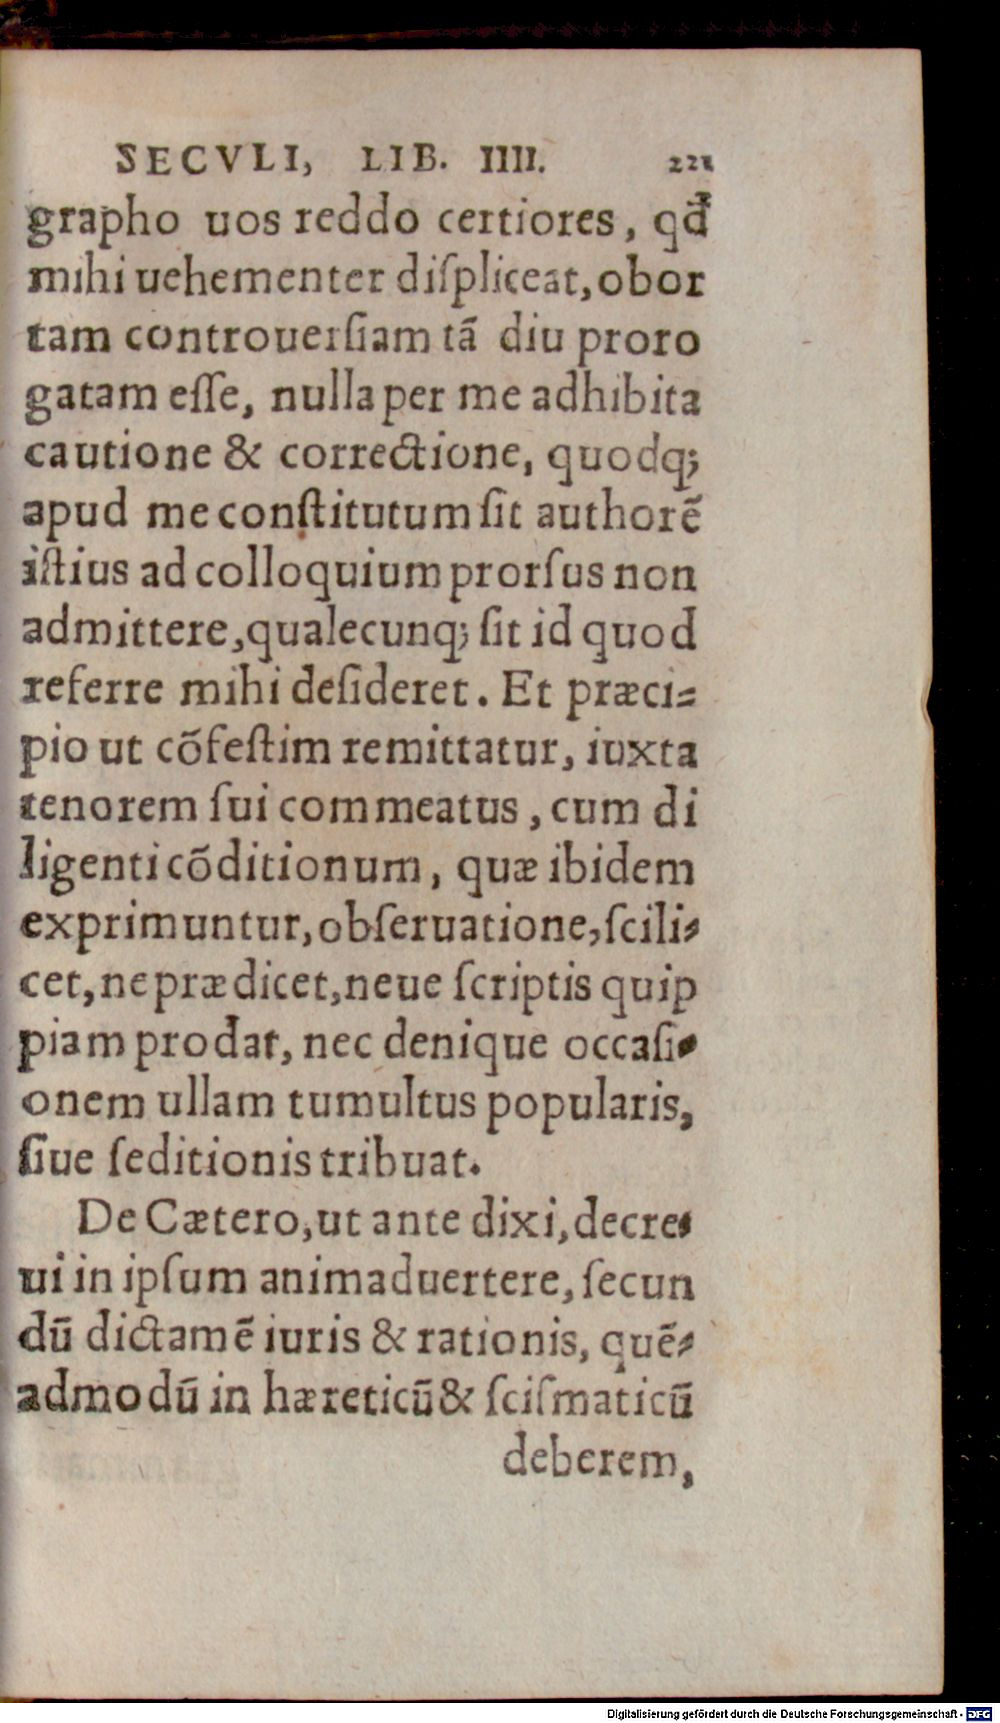 SECVLI, LIB. IIII. 221
grapho uos reddo certiores, qđ
mihi uehementer diſpliceat, obor
tam controuerſiam tã diu proro
gatam eſſe, nulla per me adhibita
cautione & correctione, quodq́;
apud me conſtitutum ſit authorẽ
iſtius ad colloquium prorſus non
admittere, qualecunq; ſit id quod
referre mihi deſideret. Et præci-
pio ut cõfeſtim remittatur, iuxta
tenorem ſui commeatus, cum di
ligenti cõditionum, quæ ibidem
exprimuntur, obſeruatione, ſcili-
cet, ne prædicet, neue ſcriptis quip
piam prodat, nec denique occaſi-
onem ullam tumultus popularis,
ſiue ſeditionis tribuat.
De Cætero, ut ante dixi, decre-
ui in ipſum animaduertere, ſecun
dũ dictamẽ iuris & rationis, quẽ-
admodũ in hæreticũ & ſciſmaticũ
deberem,
Digitalisierung gefördert durch die Deutsche Forschungsgemeinschaft - DFG